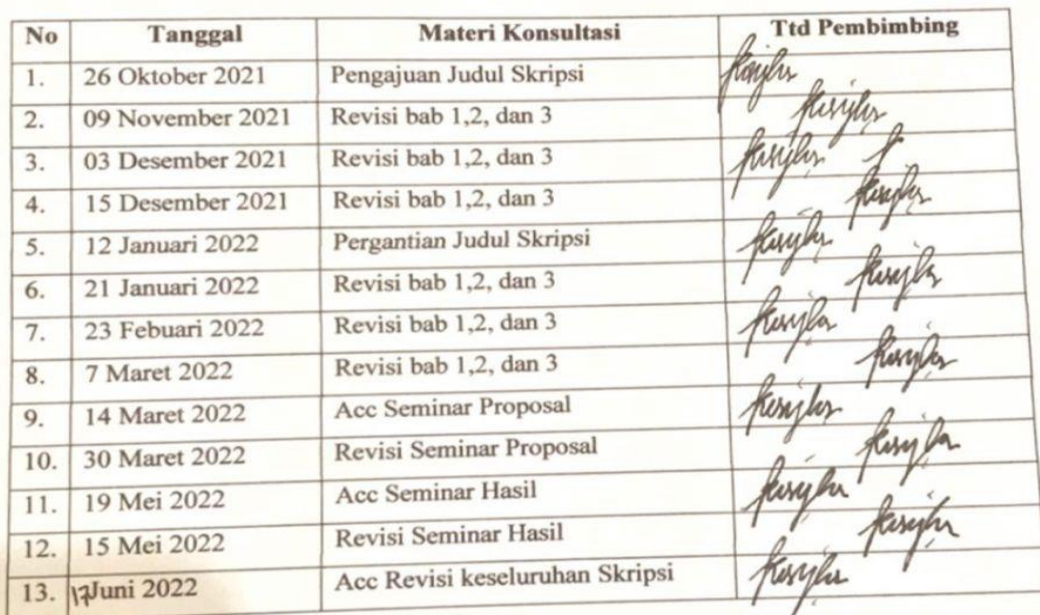 No Tanggal Materi Konsultasi Ttd Pembimbing
1. 26 Oktober 2021 Pengajuan Judul Skripsi
2. 09 November 2021 Revisi bab 1,2, dan 3
3. 03 Desember 2021 Revisi bab 1,2, dan 3
4. 15 Desember 2021 Revisi bab 1,2, dan 3
5. 12 Januari 2022 Pergantian Judul Skripsi
6. 21 Januari 2022 Revisi bab 1,2, dan 3
7. 23 Febuari 2022 Revisi bab 1,2, dan 3
8. 7 Maret 2022 Revisi bab 1,2, dan 3
9. 14 Maret 2022 Acc Seminar Proposal
10. 30 Maret 2022 Revisi Seminar Proposal
11. 19 Mei 2022 Acc Seminar Hasil
12. 15 Mei 2022 Revisi Seminar Hasil
13. 17 Juni 2022 Acc Revisi keseluruhan Skripsi